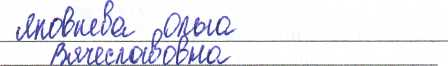 Яковлева Ольга
Вячеславовна